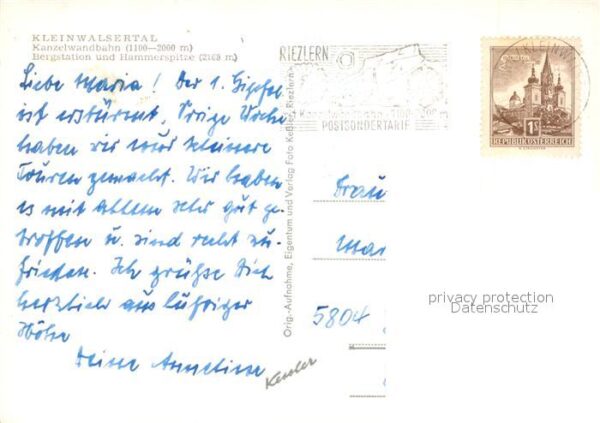 KLEINWALSERTAL
Kanzelwandbahn (1100—2000 m)
Bergstation und Hammerspitze (2163 m)
Liebe Maria! Der 1. Gipfel
ist erstürmt. Vorige Woche
haben wir nur kleinere
Touren gemacht. Wir haben
es mit allem sehr gut ge-
troffen u. sind recht zu-
frieden. Ich grüße Dich
herzlich aus luftiger
Höhe
Deine Anneliese
Kessler
Orig.-Aufnahme, Eigentum und Verlag Foto Keßler, Riezlern
RIEZLERN
Kanzelwandbahn 1100-2000 m
POSTSONDERTARIF
1 S
REPUBLIK ÖSTERREICH
Frau
Mar
5804
privacy protection
Datenschutz